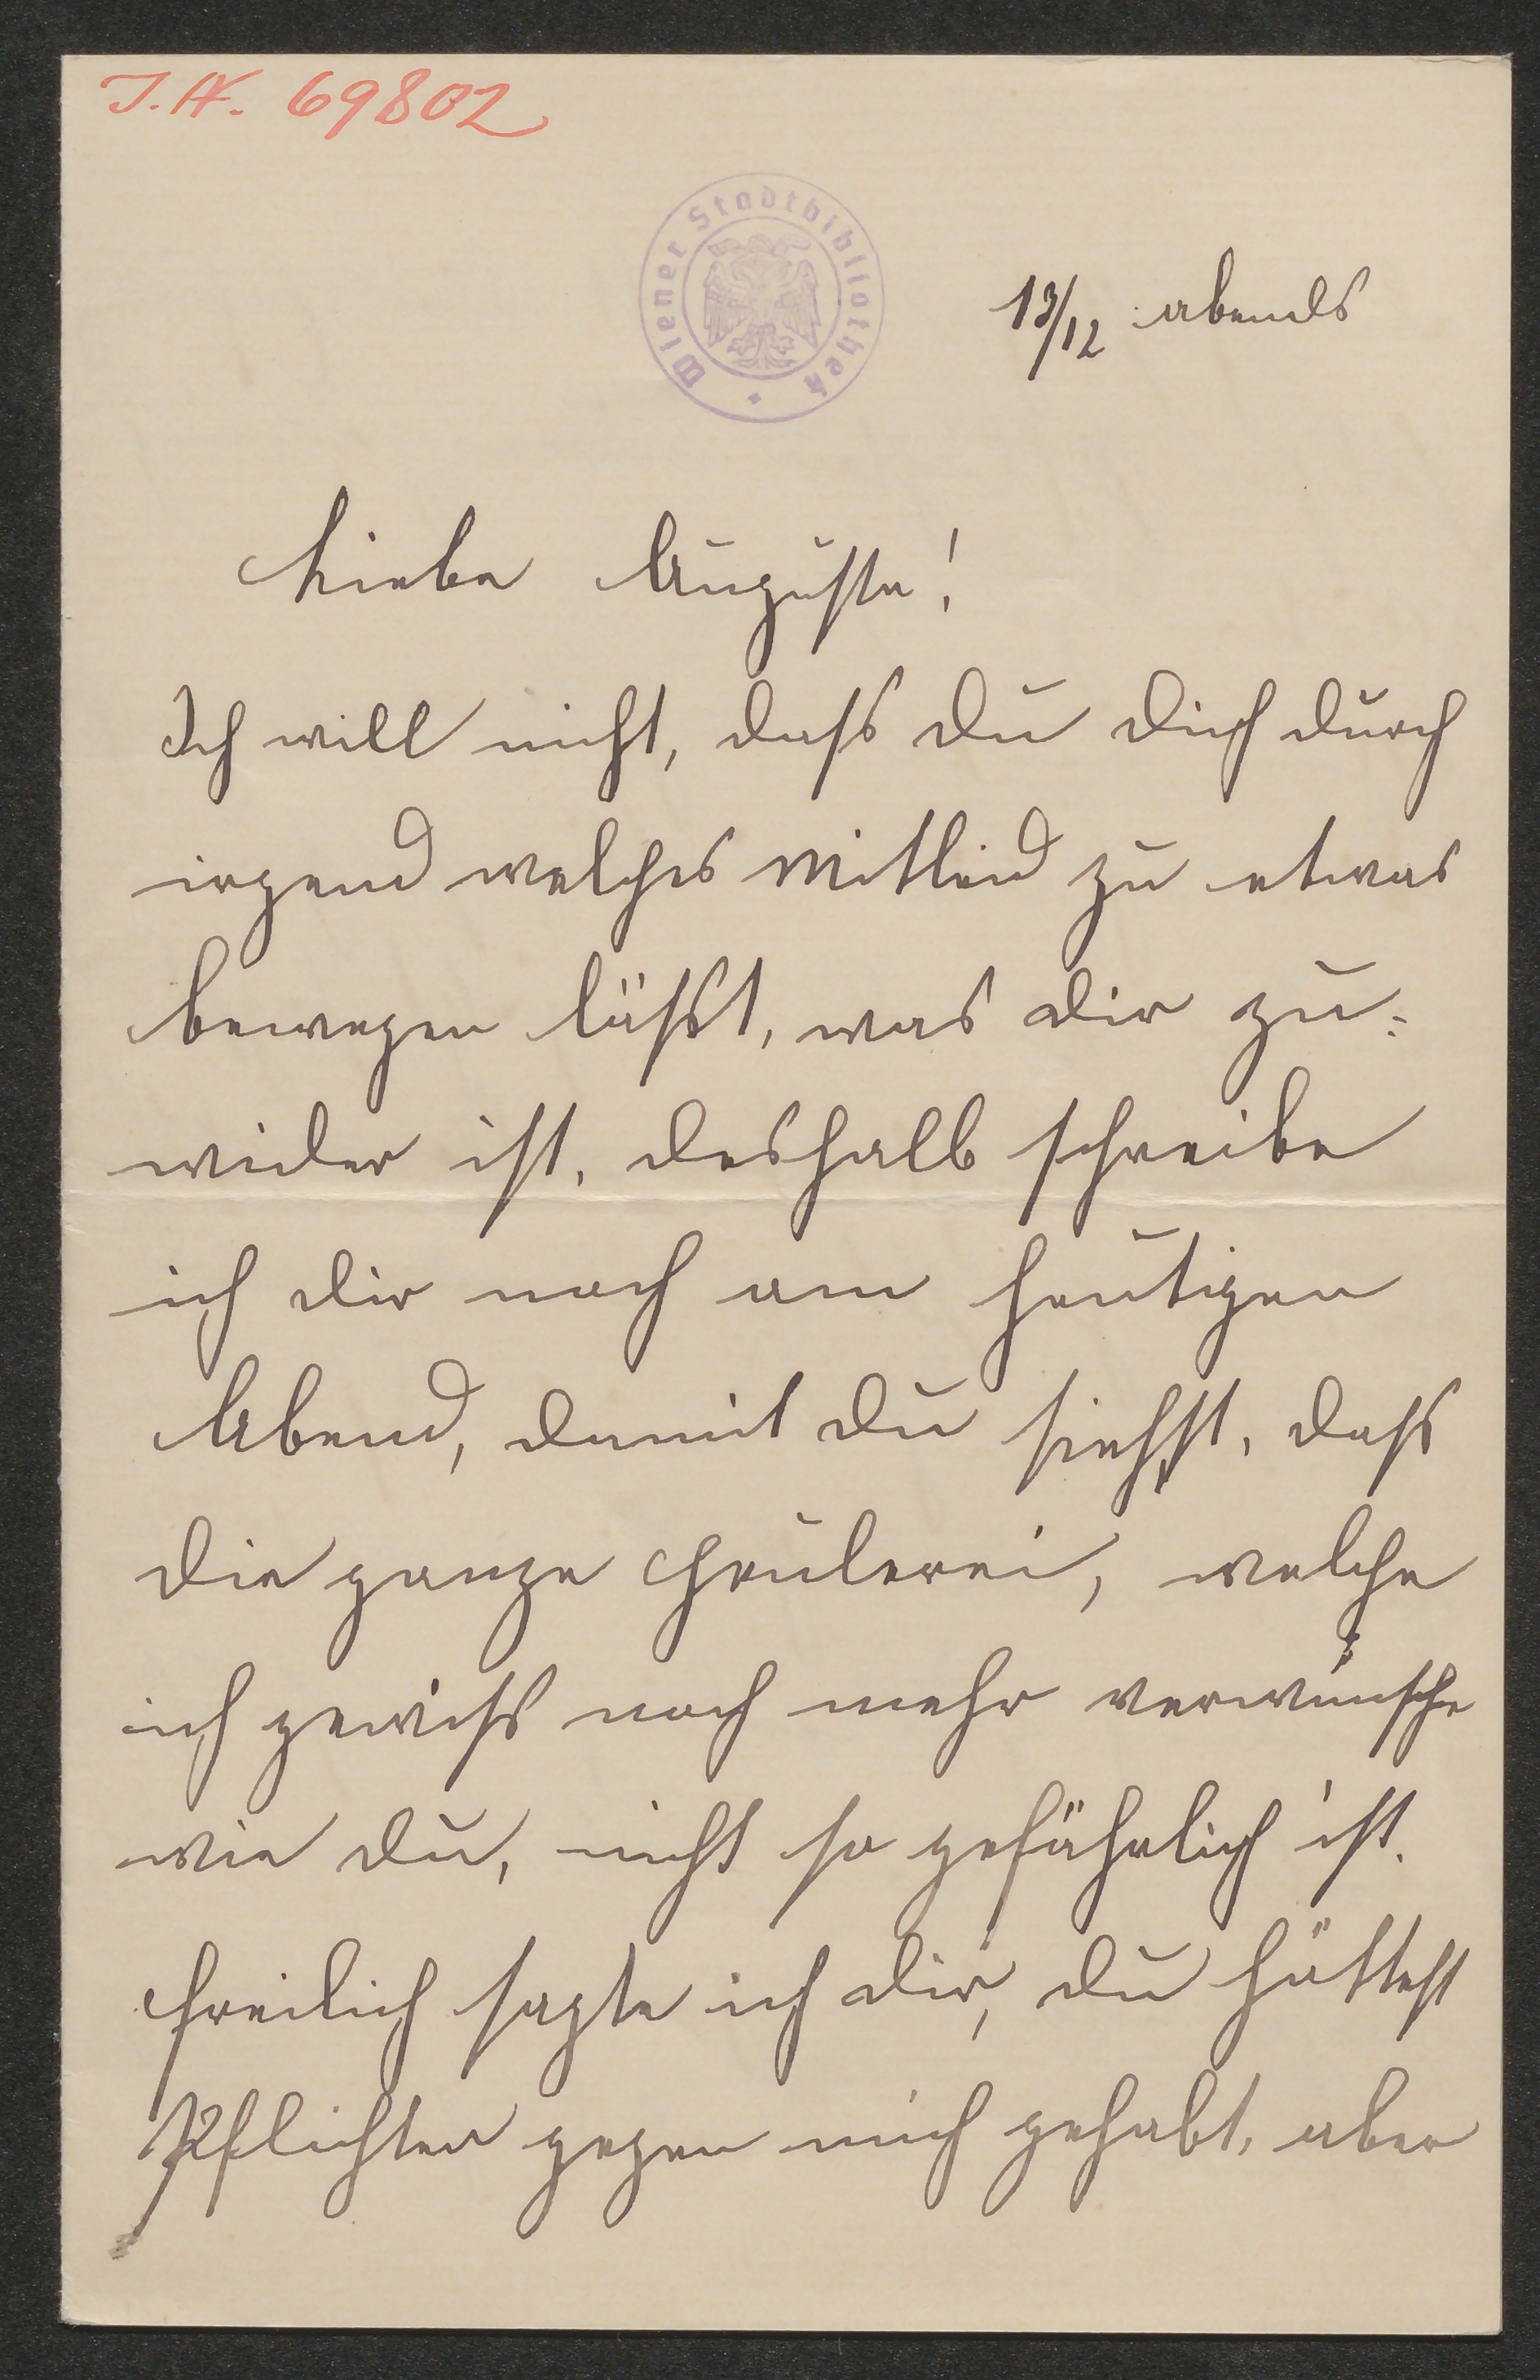 J.N. 69802
Wiener Stadtbibliothek
13/12 abends
Liebe Auguste!
Ich will nicht, dass du dich durch
irgend welches Mitleid zu etwas
bewegen läßt, was dir zu-
wider ist, deshalb schreibe
ich dir noch am heutigen
Abend, damit du siehst, dass
die ganze Heulerei, welche
ich gewiss noch mehr verwünsche
wie du, nicht so gefährlich ist.
Freilich sagte ich dir, du hättest
Pflichten gegen mich gehabt, aber